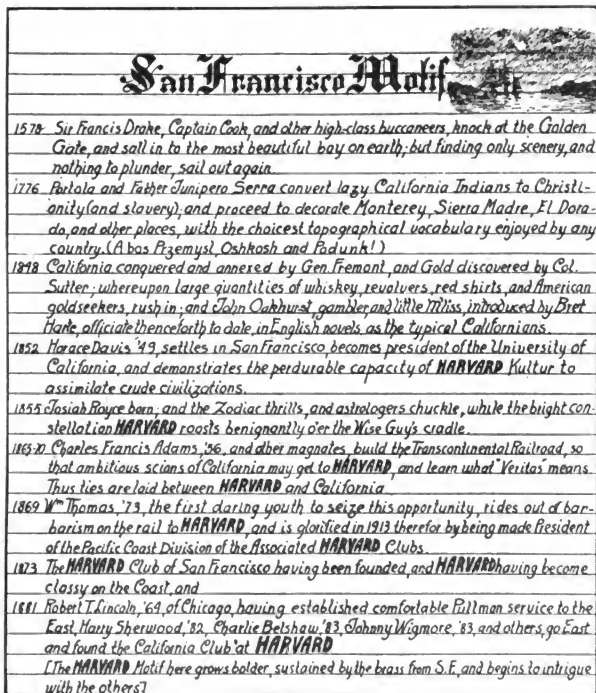 San Francisco Motif
1578 Sir Francis Drake, Captain Cook, and other high-class buccaneers, knock at the Golden
Gate, and sail in to the most beautiful bay on earth; but finding only scenery, and
nothing to plunder, sail out again.
1776 Portola and Father Junipero Serra convert lazy California Indians to Christi-
anity (and slavery), and proceed to decorate Monterey, Sierra Madre, El Dora-
do, and other places, with the choicest topographical vocabulary enjoyed by any
country. (A bas Przemysl, Oshkosh and Podunk!)
1848 California conquered and annexed by Gen. Fremont, and Gold discovered by Col.
Sutter; whereupon large quantities of whiskey, revolvers, red shirts, and American
goldseekers, rush in; and John Oakhurst, gambler, and little M'liss, introduced by Bret
Harte, officiate thenceforth to date, in English novels, as the typical Californians.
1852 Horace Davis '49, settles in San Francisco, becomes president of the University of
California, and demonstrates the perdurable capacity of HARVARD Kultur to
assimilate crude civilizations.
1855 Josiah Royce born; and the Zodiac thrills, and astrologers chuckle, while the bright con-
stellation HARVARD roosts benignantly o'er the Wise Guy's cradle.
1865-70 Charles Francis Adams, '56, and other magnates, build the Transcontinental Railroad, so
that ambitious scions of California may get to HARVARD, and learn what "Veritas" means.
Thus ties are laid between HARVARD and California
1869 Wm Thomas, '73, the first daring youth to seize this opportunity, rides out of bar-
barism on the rail to HARVARD, and is glorified in 1913 therefor by being made President
of the Pacific Coast Division of the Associated HARVARD Clubs.
1873 The HARVARD Club of San Francisco having been founded, and HARVARD having become
classy on the Coast, and
1881 Robert T. Lincoln, '64, of Chicago, having established comfortable Pullman service to the
East, Harry Sherwood, '82, Charlie Belshaw, '83, Johnny Wigmore, '83, and others, go East
and found the California Club at HARVARD
[The HARVARD Motif here grows bolder, sustained by the brass from S.F., and begins to intrigue
with the others]